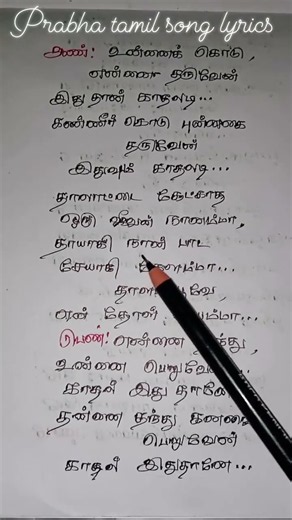 Prabha tamil song lyrics
ஆண்: உன்னைக் கொடு,
என்னை தருவேன்
இது தான் காதலடி...
கண்ணீர் கொடு புன்னகை
தருவேன்
இதுவும் காதலடி...
தாலாட்டை கேட்காத
ஒரு ஜீவன் நானம்மா,
தாயாகி நான் பாட
சேயாகி
என் தோள்
பெண்: என்னை தந்து,
உன்னை பெறுவே
காதல் இது தானே
தன்னை தந்து
பெறுவேன்
காதல் இதுதானே...